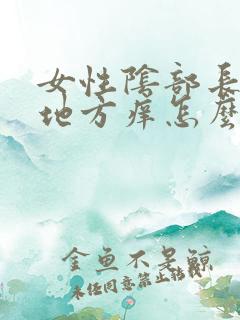 女性陰部長
地方痒怎麼
金魚不是鯨
未经同意禁止转载